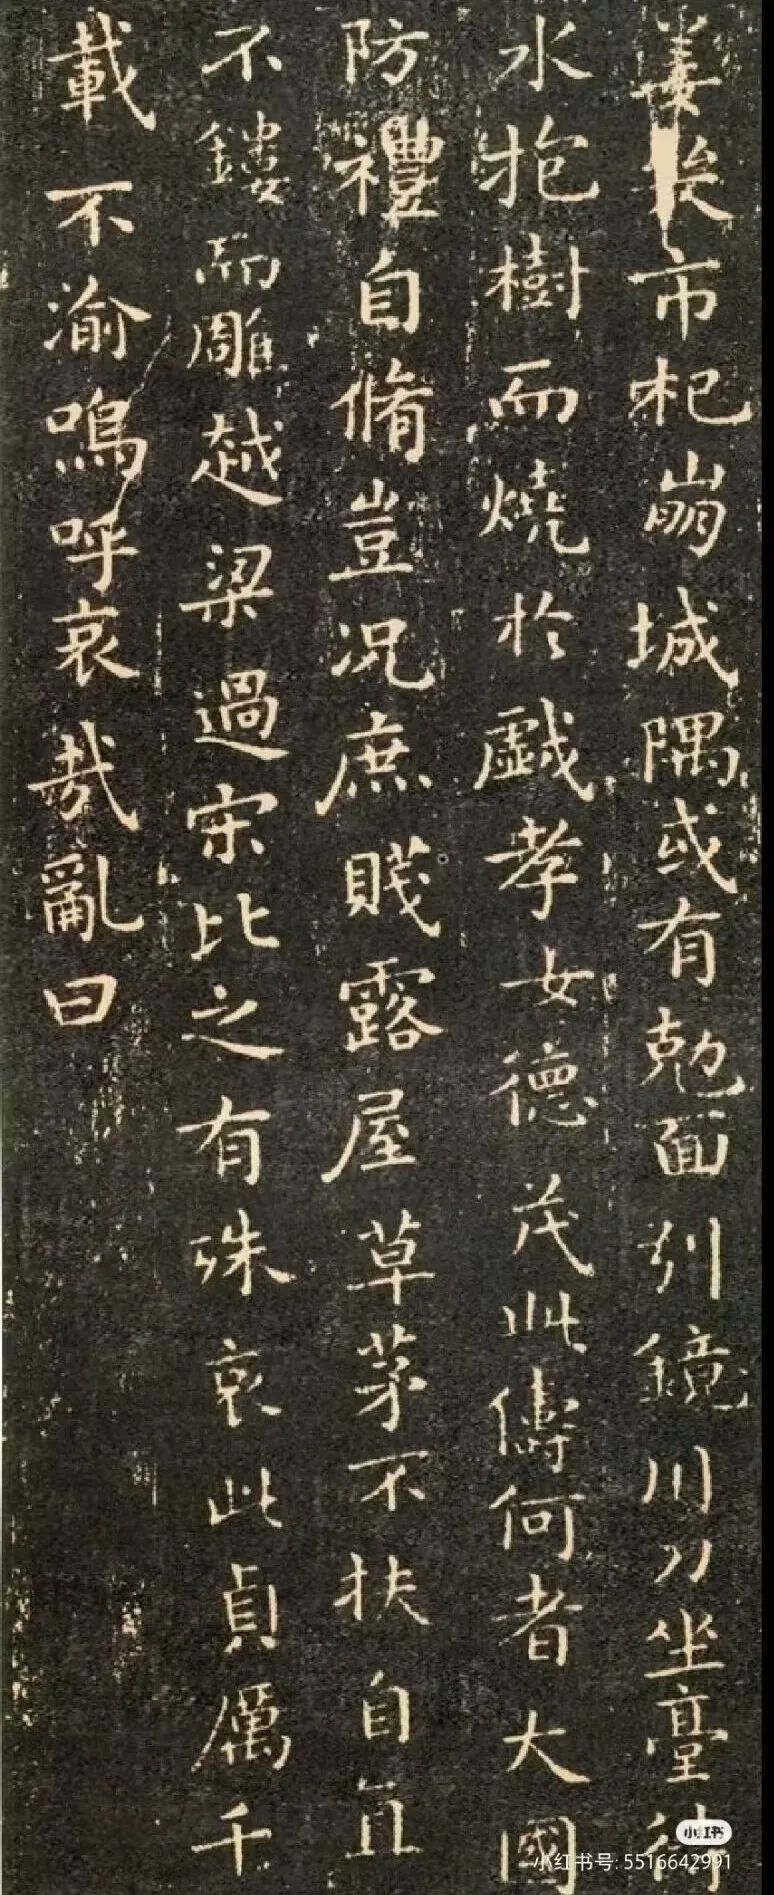 姜市杞崩城隅或有尅面引鏡川刀坐臺待
水抱樹而燒於戲孝女德茂此儔何者大國
防禮自脩豈況庶賤露屋草茅不扶自直
不鏤而雕越梁過宋比之有殊哀此貞厲千
載不渝嗚呼哀哉亂曰
小红书
小红书号: 5516642991